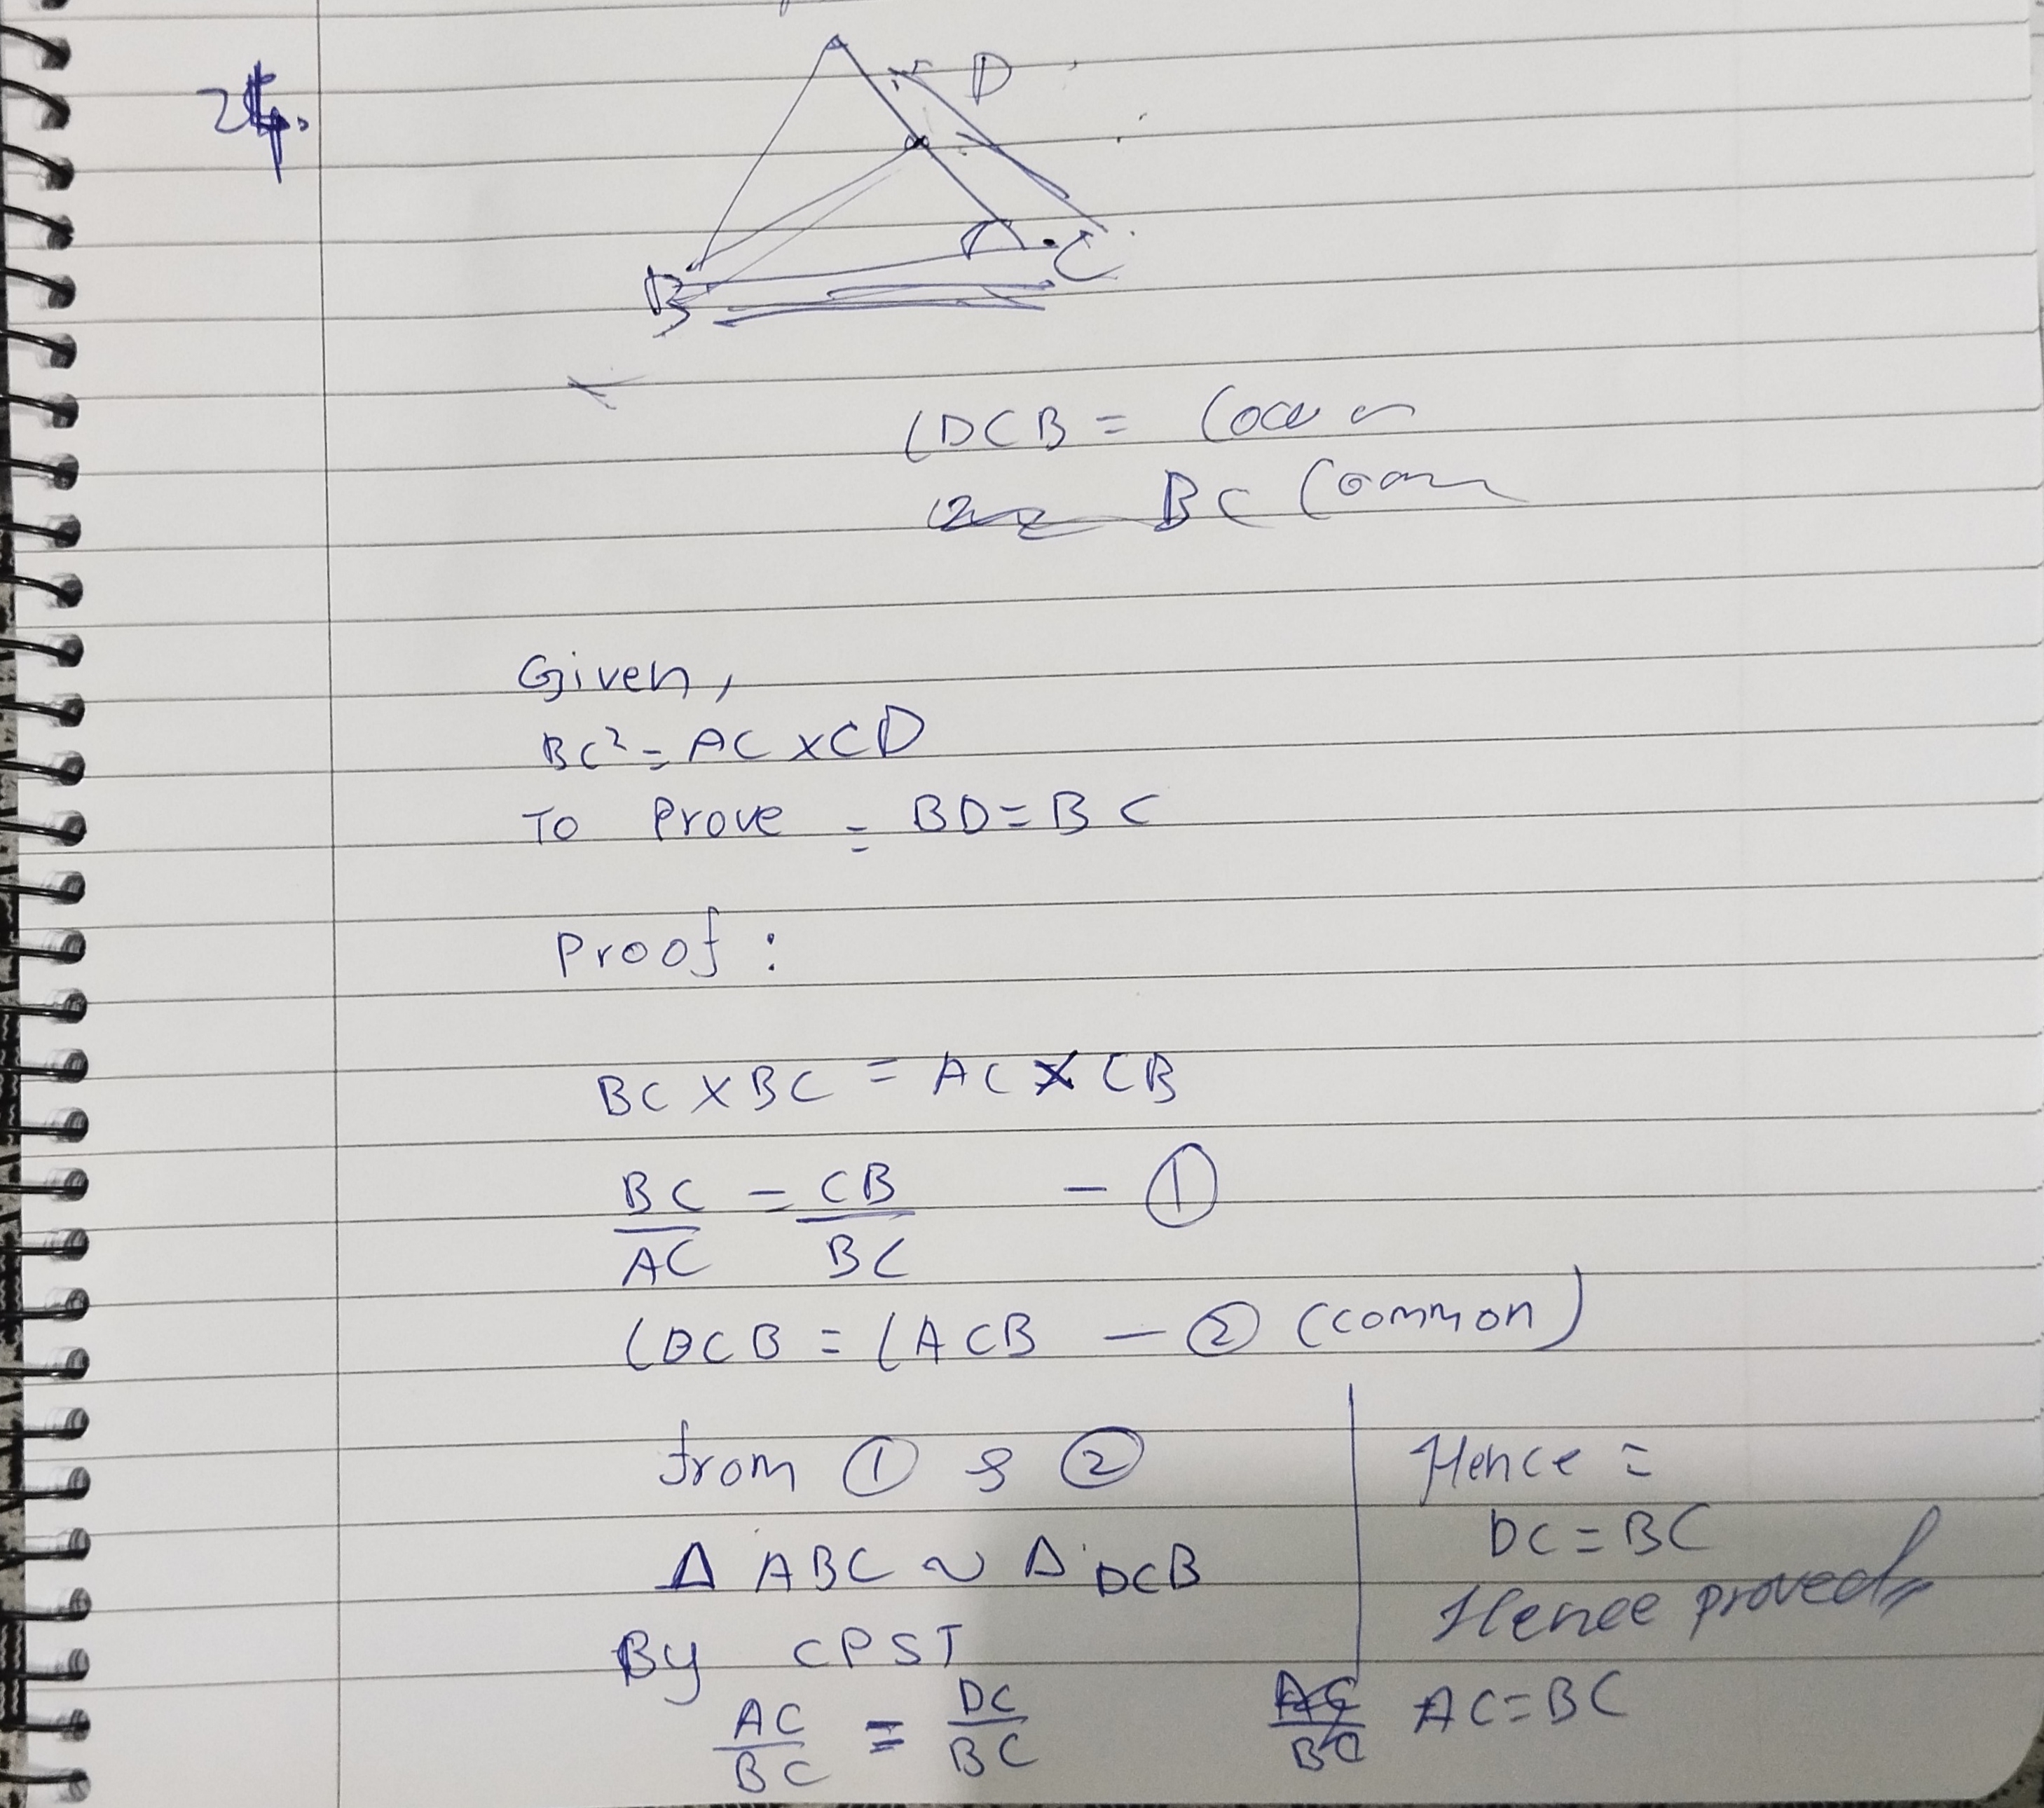 24.
D
B
C
∠DCB =
BC
Given,
BC² = AC × CD
To Prove = BD = BC
Proof :
BC × BC = AC × CB
BC/AC = CB/BC - ①
∠DCB = ∠ACB - ② (common)
from ① & ②
Δ ABC ~ Δ DCB
By CPST
AC/BC = DC/BC
Hence =
DC = BC
Hence proved
AC = BC